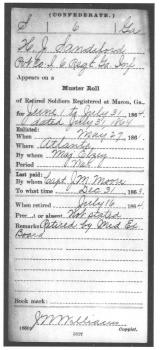 (CONFEDERATE.)
S 6 Ga
H. J. Sandeford
Appears on a
Muster Roll
of Retired Soldiers Registered at Macon, Ga.,
for June 1 to July 31, 1864
dated July 31, 1864
Enlisted:
When May 27, 186
Where Atlanta
By Maj
Period War
Last paid:
By Capt J. M. Moore
To what time Dec 31, 1863.
When retired July 16, 1864
Present or absent Not stated
Remarks: Retired by Med Ex
Board
Book mark:
J M Williams
Copyist.